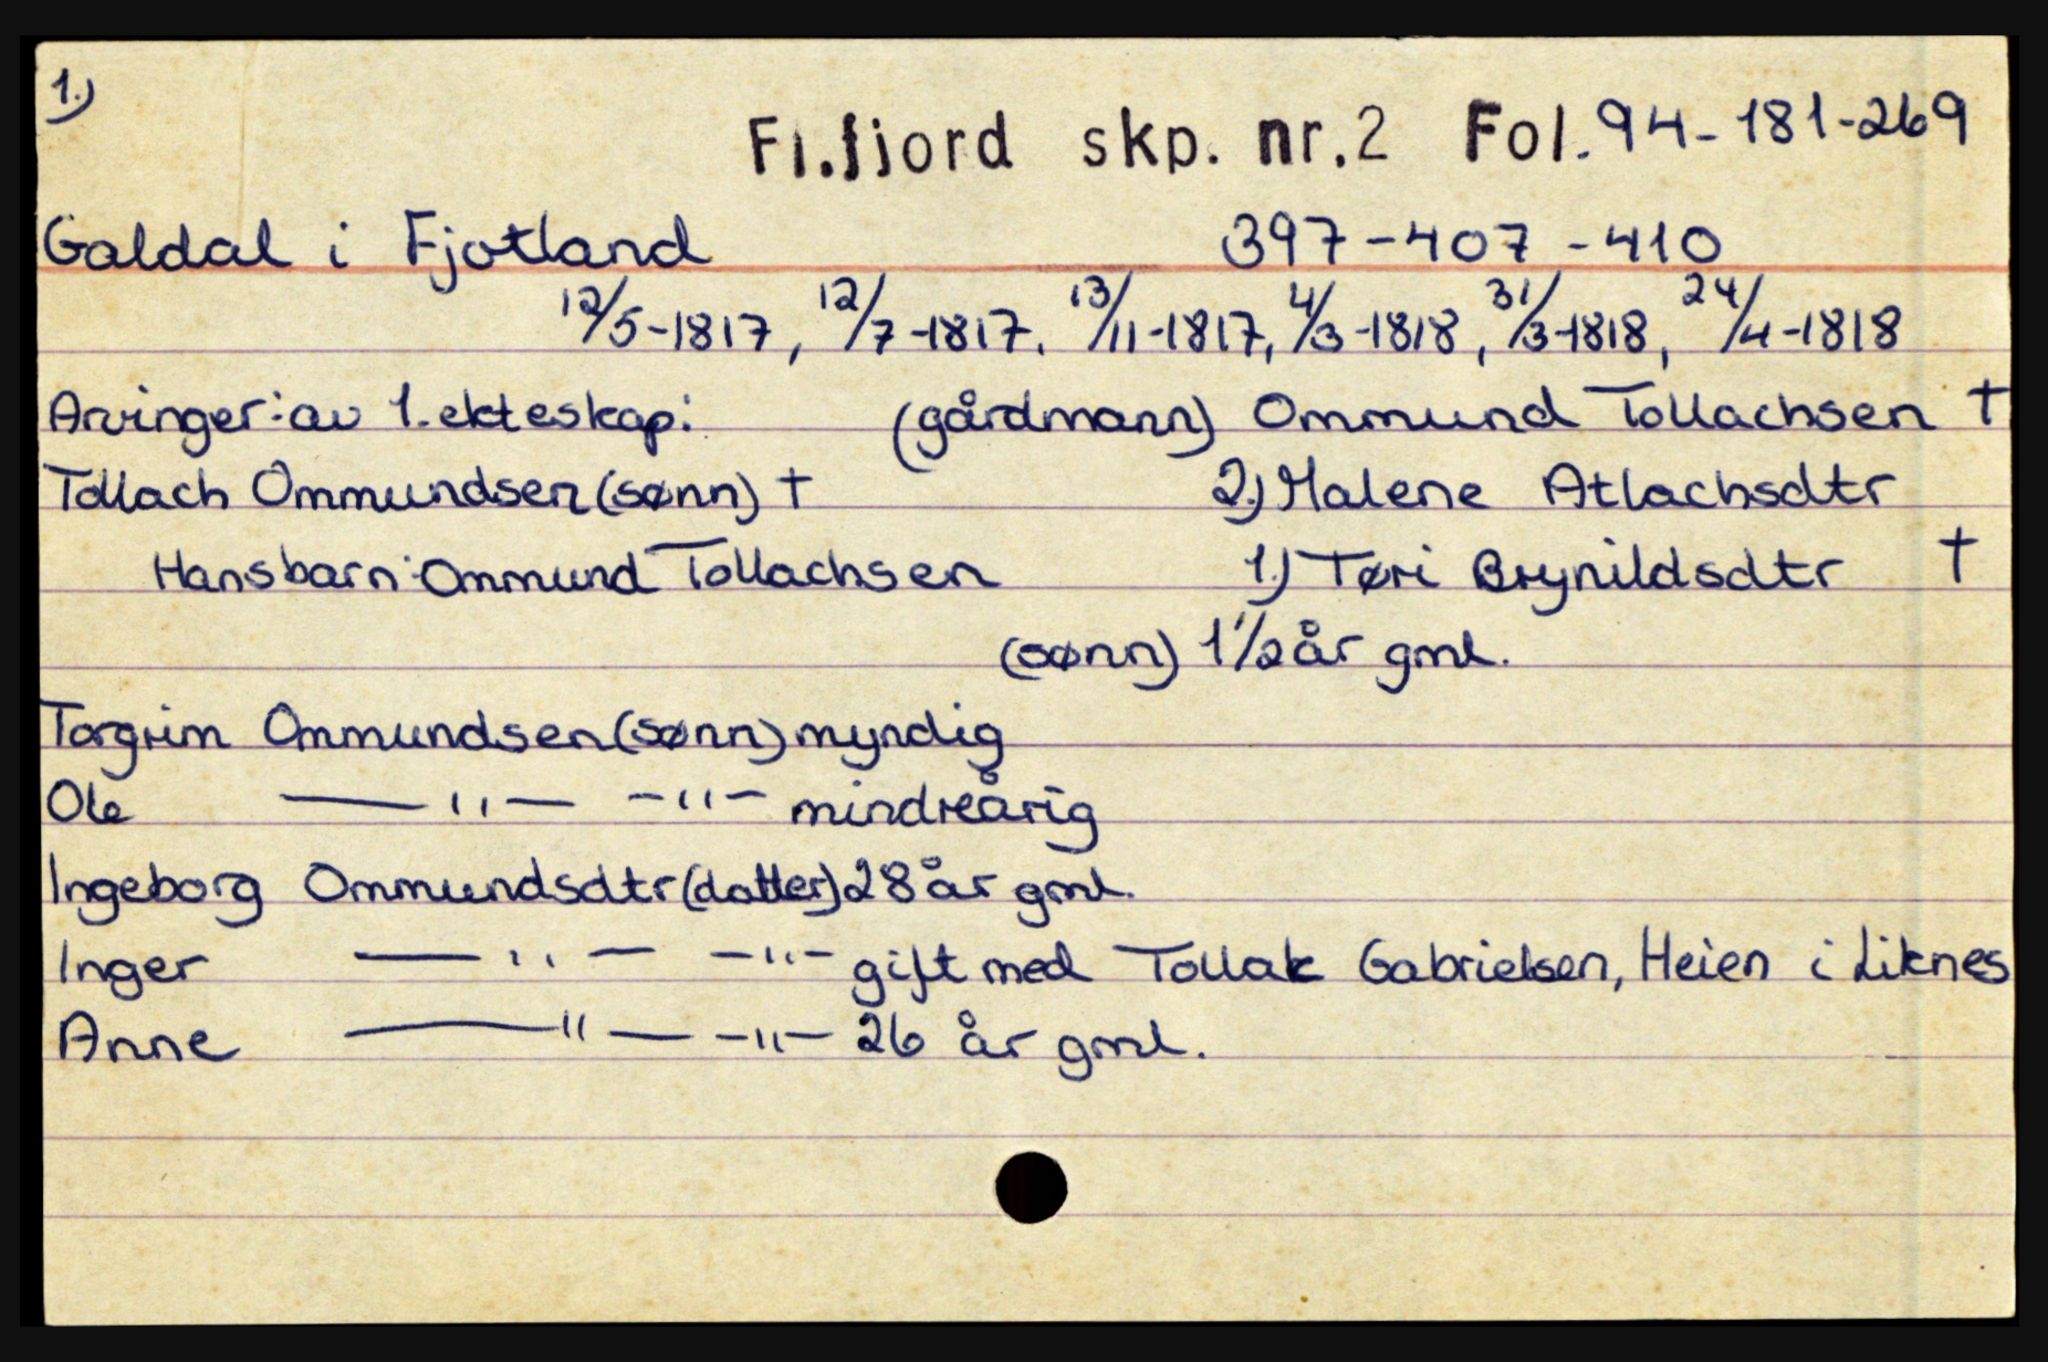 1.)
Fl.fjord skp. nr.2 Fol. 94-181-269
Galdal i Fjotland 397-407-410
12/5-1817, 12/7-1817. 13/11-1817, 4/3-1818, 31/3-1818, 24/4-1818
Arvinger: av 1. ekteskap: (gårdmann) Ommund Tollachsen †
Tollach Ommundsen (sønn) † 2.) Malene Atlachsdtr
Hans barn: Ommund Tollachsen 1.) Tøri Brynildsdtr †
(sønn) 1 1/2 år gml.
Torgrim Ommundsen (sønn) myndig
Ole —"— -"- mindreårig
Ingeborg Ommundsdtr (datter) 28 år gml.
Inger —"— -"- gift med Tollak Gabrielsen, Heien i Liknes
Anne —"— -"- 26 år gml.